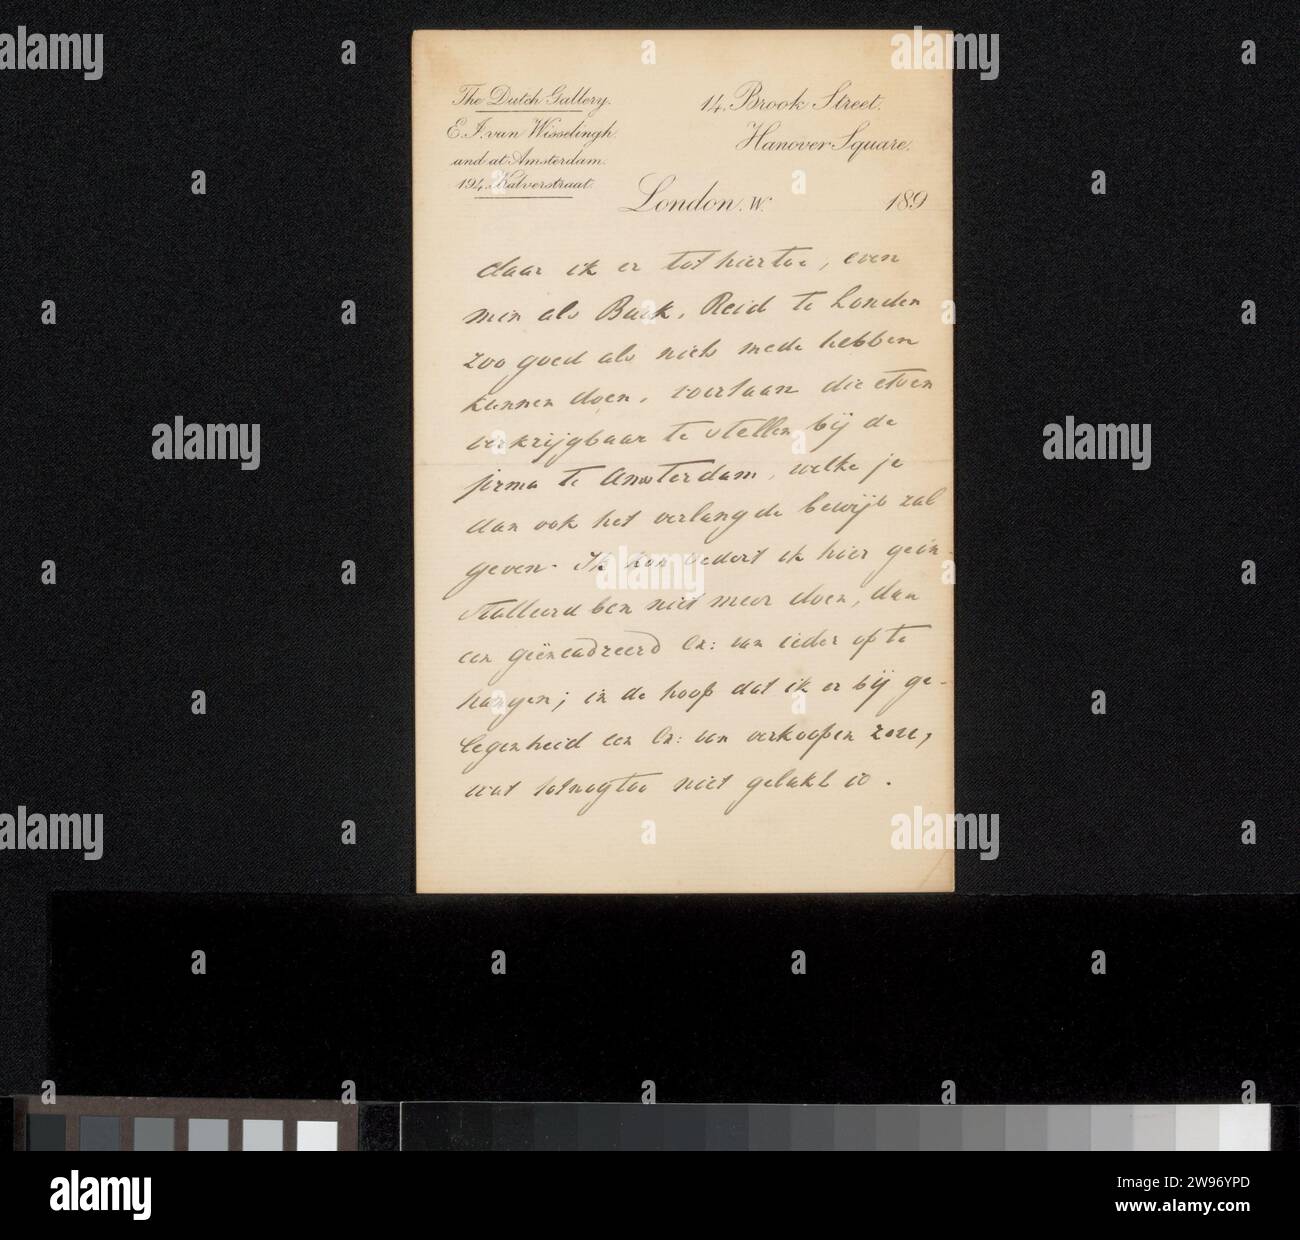 The Dutch Gallery.
E. J. van Wisselingh
and at Amsterdam.
194. Kalverstraat.
14. Brook Street.
Hanover Square.
London. W. 189
daar ik er tot hiertoe, even
min als Buck, Reid te Londen
zoo goed als niets mede hebben
kunnen doen, voortaan die etsen
verkrijgbaar te stellen bij de
firma te Amsterdam, welke je
dan ook het verlangde bewijs zal
geven. Ik kon sedert ik hier gein-
stalleerd ben niet meer doen, dan
een geëncadreerd Ex: van ieder op te
hangen; in de hoop dat ik er bij ge-
legenheid een Ex: van verkoopen zou,
wat totnogtoe niet gelukt is.
alamy
Image ID: 2W96YPD
www.alamy.com